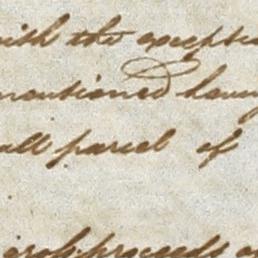 with the excepti
mentioned having
all parcel of
proceeds of